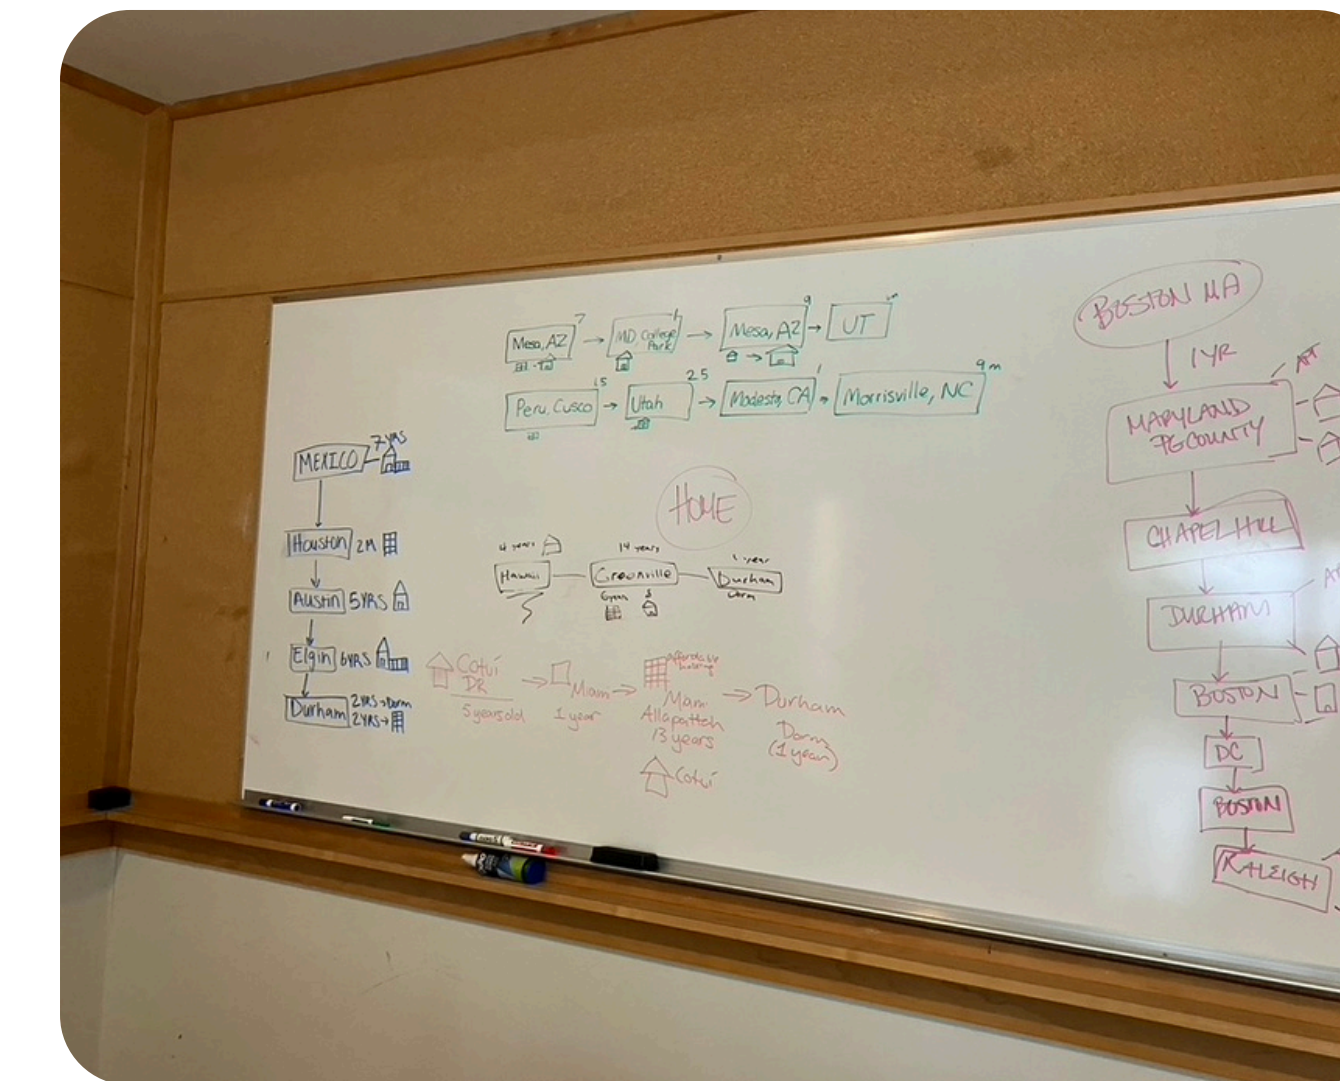 7
Mesa, AZ
1
MD, College
Park
9
Mesa, AZ
UT
15
Peru, Cusco
2.5
Utah
1
Modesto, CA
9m
Morrisville, NC
HOME
7 YRS
MEXICO
Houston 2M
Austin 5YRS
Elgin 6YRS
Durham 2YRS → Dorm
2YRS →
4 years
Hawaii
14 years
Greenville
6 years
8
1 year
Durham
dorm
Cotuí
DR
5 years old
Miami
1 year
Affordable
housing
Miami
Allapattah
13 years
Cotuí
Durham
Dorm
(1 year)
BOSTON MA
1 YR
MARYLAND
PG COUNTY
CHAPEL HILL
DURHAM
BOSTON
DC
BOSTON
RALEIGH